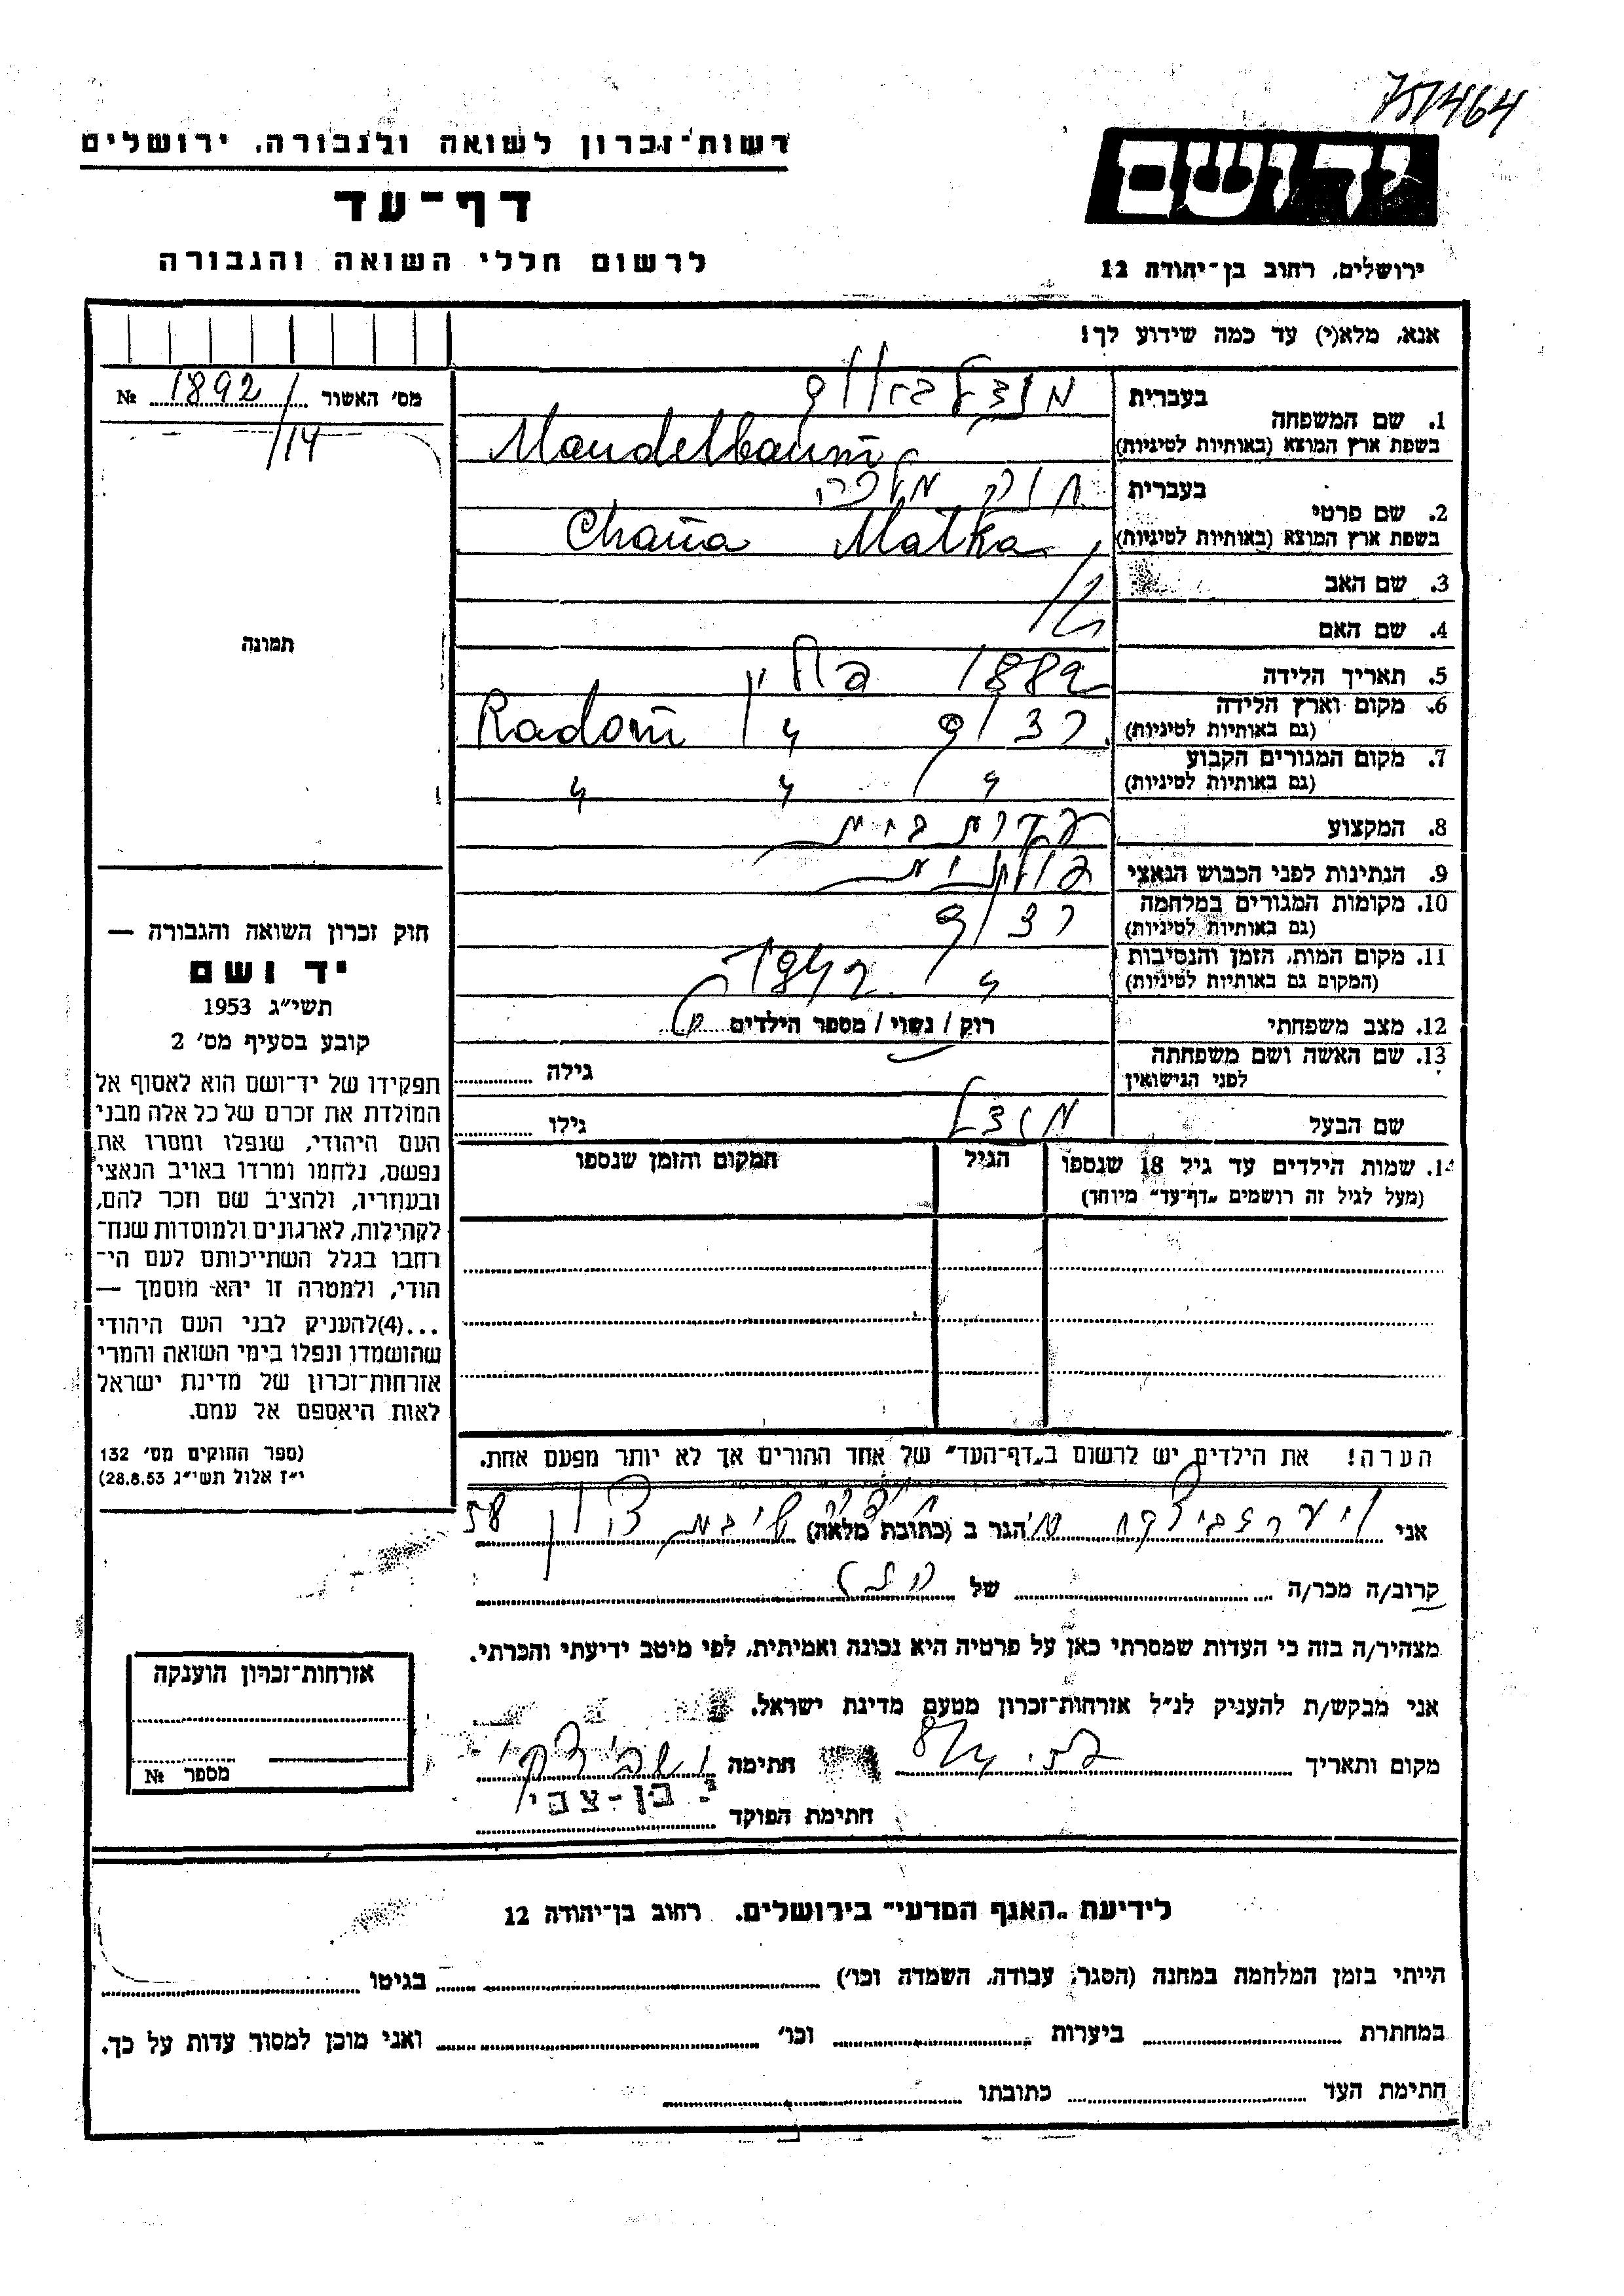 75/464
רשות־זכרון לשואה ולגבורה. ירושלים
יד ושם
דף־עד
לרשום חללי השואה והגבורה
ירושלים, רחוב בן־יהודה 12
אנא, מלא(י) עד כמה שידוע לך!
מס' האשור 1892 №
/14
תמונה
1. שם המשפחה בעברית מנדלבוים
בשפת ארץ המוצא (באותיות לטיניות) Mandelbaum
2. שם פרטי בעברית חנה מלכה
בשפת ארץ המוצא (באותיות לטיניות) Chana Malka
3. שם האב
4. שם האם
5. תאריך הלידה 1882 פולין
6. מקום וארץ הלידה רדום " Radom
(גם באותיות לטיניות)
7. מקום המגורים הקבוע " " "
(גם באותיות לטיניות)
8. המקצוע עקרת בית
9. הנתינות לפני הכבוש הנאצי פולנית
10. מקומות המגורים במלחמה רדום
(גם באותיות לטיניות)
11. מקום המות, הזמן והנסיבות " 1942
(המקום גם באותיות לטיניות)
12. מצב משפחתי רוק / נשוי / מספר הילדים
13. שם האשה ושם משפחתה גילה
לפני הנישואין
שם הבעל מנדל גילו
14. שמות הילדים עד גיל 18 שנספו הגיל המקום והזמן שנספו
(מעל לגיל זה רושמים "דף־עד" מיוחד)
הערה! את הילדים יש לרשום ב"דף־העד" של אחד ההורים אך לא יותר מפעם אחת.
חוק זכרון השואה והגבורה —
יד ושם
תשי"ג 1953
קובע בסעיף מס' 2
תפקידו של יד־ושם הוא לאסוף אל
המולדת את זכרם של כל אלה מבני
העם היהודי, שנפלו ומסרו את
נפשם, נלחמו ומרדו באויב הנאצי
ובעוזריו, ולהציב שם וזכר להם,
לקהילות, לארגונים ולמוסדות שנח־
רחבו בגלל השתייכותם לעם הי־
הודי, ולמטרה זו יהא מוסמך —
...(4)להעניק לבני העם היהודי
שהושמדו ונפלו בימי השואה והמרי
אזרחות־זכרון של מדינת ישראל
לאות היאספם אל עמם.
(ספר החוקים מס' 132
י"ז אלול תשי"ג 28.8.53)
אני הגר ב (כתובת מלאה) שיבת ציון 58
קרוב/ה מכר/ה של
מצהיר/ה בזה כי העדות שמסרתי כאן על פרטיה היא נכונה ואמיתית, לפי מיטב ידיעתי והכרתי.
אני מבקש/ת להעניק לנ"ל אזרחות־זכרון מטעם מדינת ישראל.
מקום ותאריך חתימה
י. בן-צבי
חתימת הפוקד
אזרחות־זכרון הוענקה
מספר №
לידיעת "האגף המדעי" בירושלים. רחוב בן־יהודה 12
הייתי בזמן המלחמה במחנה (הסגר, עבודה, השמדה וכו') בגיטו
במחתרת ביערות וכו' ואני מוכן למסור עדות על כך.
חתימת העד כתובתו